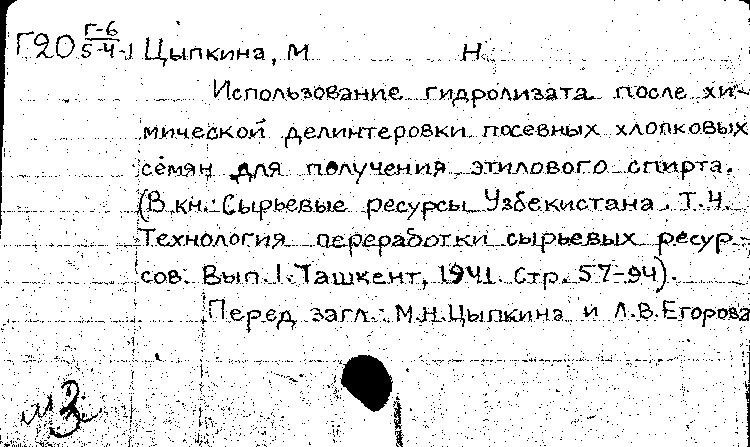 Г20 Г-6/5-4-1 Цыпкина, М Н
Использование гидролизата после хи-
мической делинтеровки посевных хлопковых
семян для получения этилового спирта.
(В кн.: Сырьевые ресурсы Узбекистана. Т.4.
Технология переработки сырьевых ресур-
сов. Вып.1. Ташкент, 1941. Стр. 57-94).
Перед загл.: М.Н.Цыпкина и Л.В.Егорова